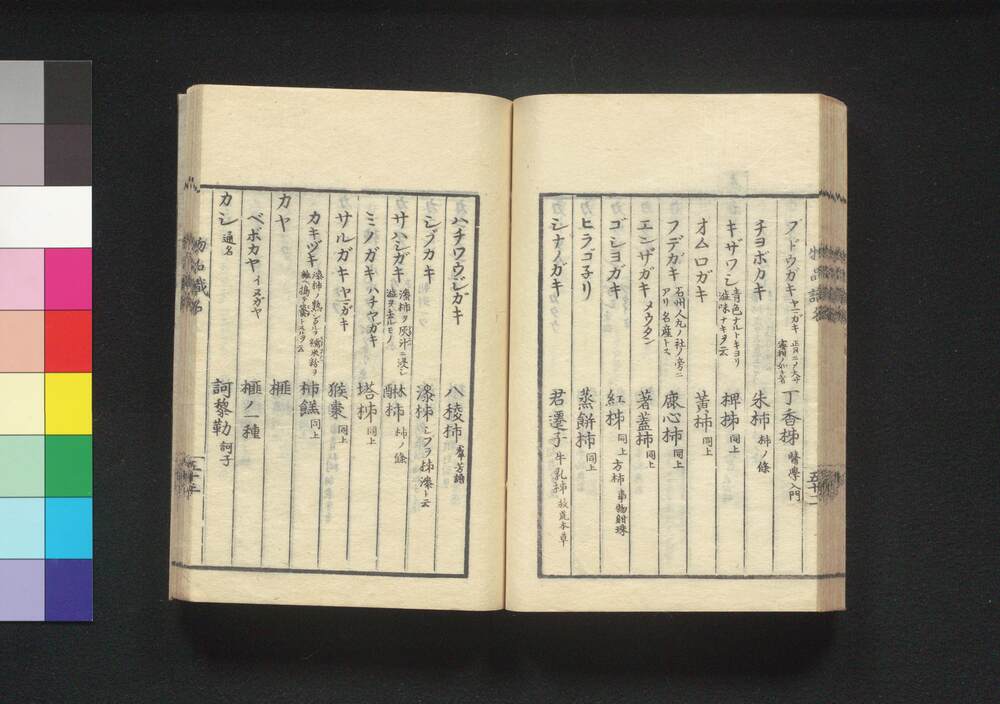 ブドウガキ ヤニガキ 丁香柹 醫學入門
チヨボカキ 朱柿 柿ノ條
キザワシ 青色ナルトキヨリ澁味ナキヲ云 椑柹 同上
オムロガキ 黃柿 同上
フデガキ 石州人丸ノ社ノ旁ニアリ名産トス 鹿心柿 同上
エンザガキ メウタン 著蓋柿 同上
ゴシヨガキ 紅柹 同上 方柿 事物紺珠
ヒラゴ子リ 蒸餅柿 同上
シナノガキ 君遷子 牛乳柹 救荒本草
五十一
ハチワウジガキ 八稜柿 羣芳譜
シブカキ 漆柹 シブヲ柹漆ト云
サハシガキ 澁柿ヲ灰汁ニ浸シ澁ヲ去ルモノ 醂柿 柿ノ條
ミノガキ ハチヤガキ 塔柹 同上
サルガキ ヤニガキ 猴棗 同上
カキヅキ 柿餻 同上
カヤ 榧
ベボカヤ イヌガヤ 榧ノ一種
カシ 通名 訶黎勒 訶子
物品識名